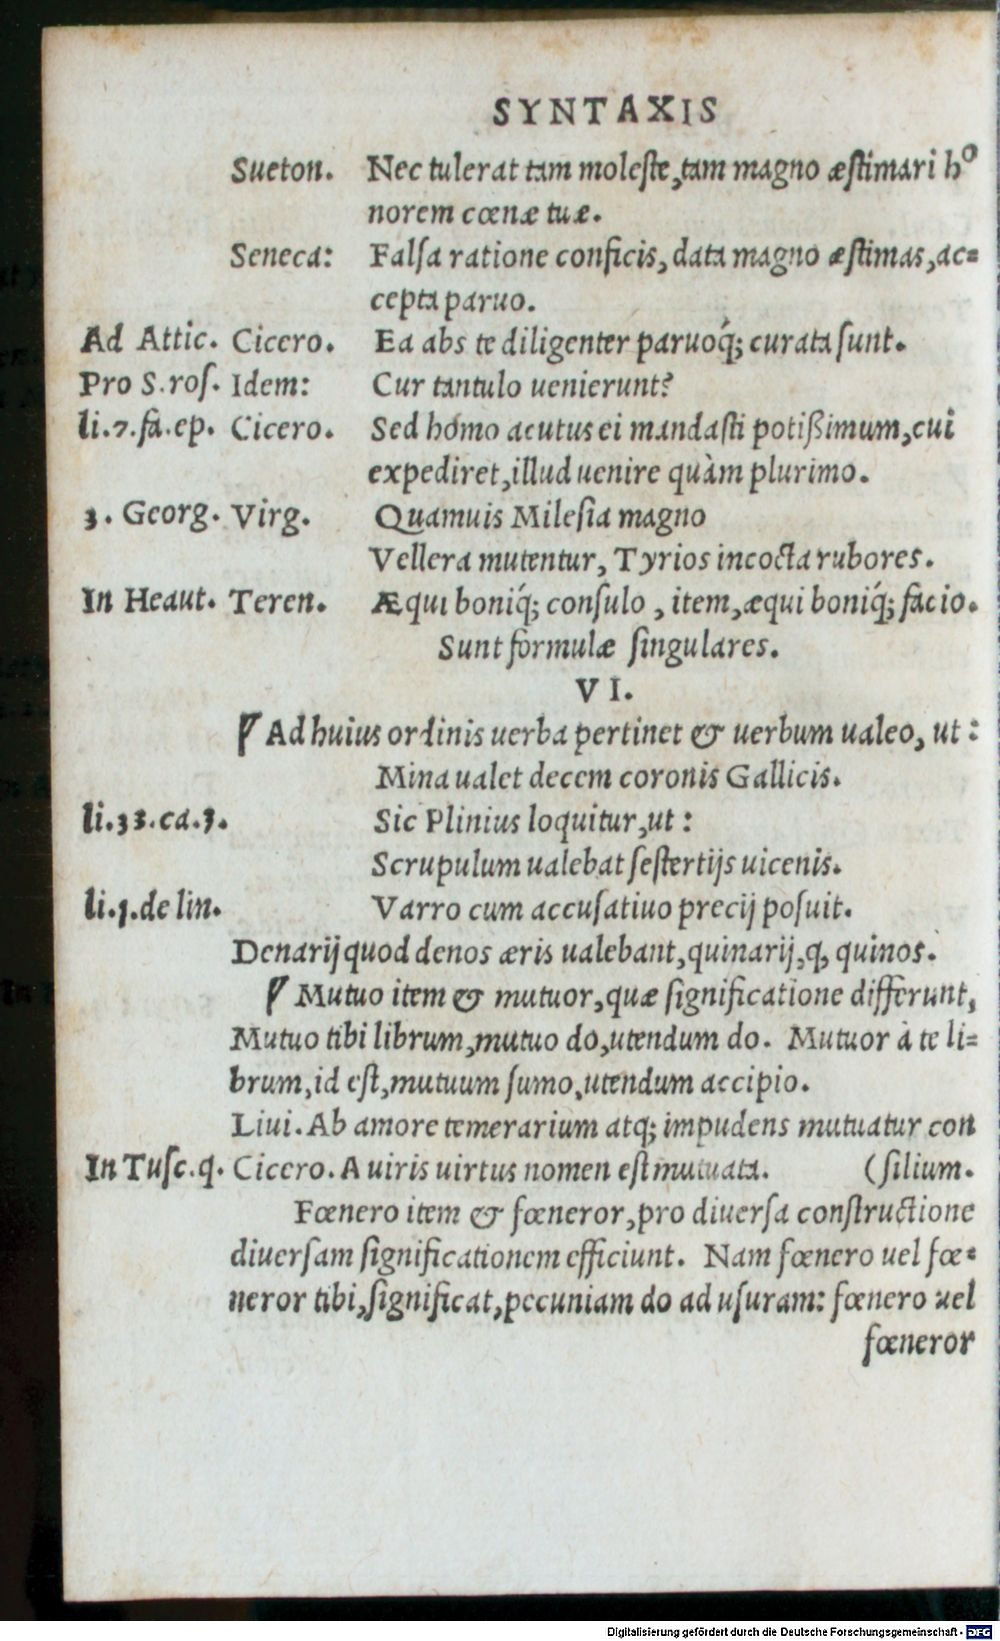 SYNTAXIS
Sueton. Nec tulerat tam moleſte, tam magno æſtimari ho
norem cœnæ tuæ.
Seneca: Falſa ratione conficis, data magno æſtimas, ac=
cepta paruo.
Ad Attic. Cicero. Ea abs te diligenter paruoq́; curata ſunt.
Pro S. roſ. Idem: Cur tantulo uenierunt?
li.7.fa.ep. Cicero. Sed homo acutus ei mandaſti potißimum, cui
expediret, illud uenire quàm plurimo.
3. Georg. Virg. Quamuis Mileſia magno
Vellera mutentur, Tyrios incocta rubores.
In Heaut. Teren. Æqui boniq́; conſulo, item, æqui boniq́; facio.
Sunt formulæ ſingulares.
VI.
Ad huius ordinis uerba pertinet & uerbum ualeo, ut:
Mina ualet decem coronis Gallicis.
li.33.ca.3. Sic Plinius loquitur, ut:
Scrupulum ualebat ſeſtertijs uicenis.
de lin. Varro cum accuſatiuo precij poſuit.
Denarij quod denos æris ualebant, quinarij, q, quinos.
Mutuo item & mutuor, quæ ſignificatione differunt,
Mutuo tibi librum, mutuo do, utendum do. Mutuor à te li=
brum, id eſt, mutuum ſumo, utendum accipio.
Liui. Ab amore temerarium atq; impudens mutuatur con
In Tuſc.q. Cicero. A uiris uirtus nomen eſt mutuata. (ſilium.
Fœnero item & fœneror, pro diuerſa conſtructione
diuerſam ſignificationem efficiunt. Nam fœnero uel fœ=
neror tibi, ſignificat, pecuniam do ad uſuram: fœnero uel
fœneror
Digitalisierung gefördert durch die Deutsche Forschungsgemeinschaft - DFG